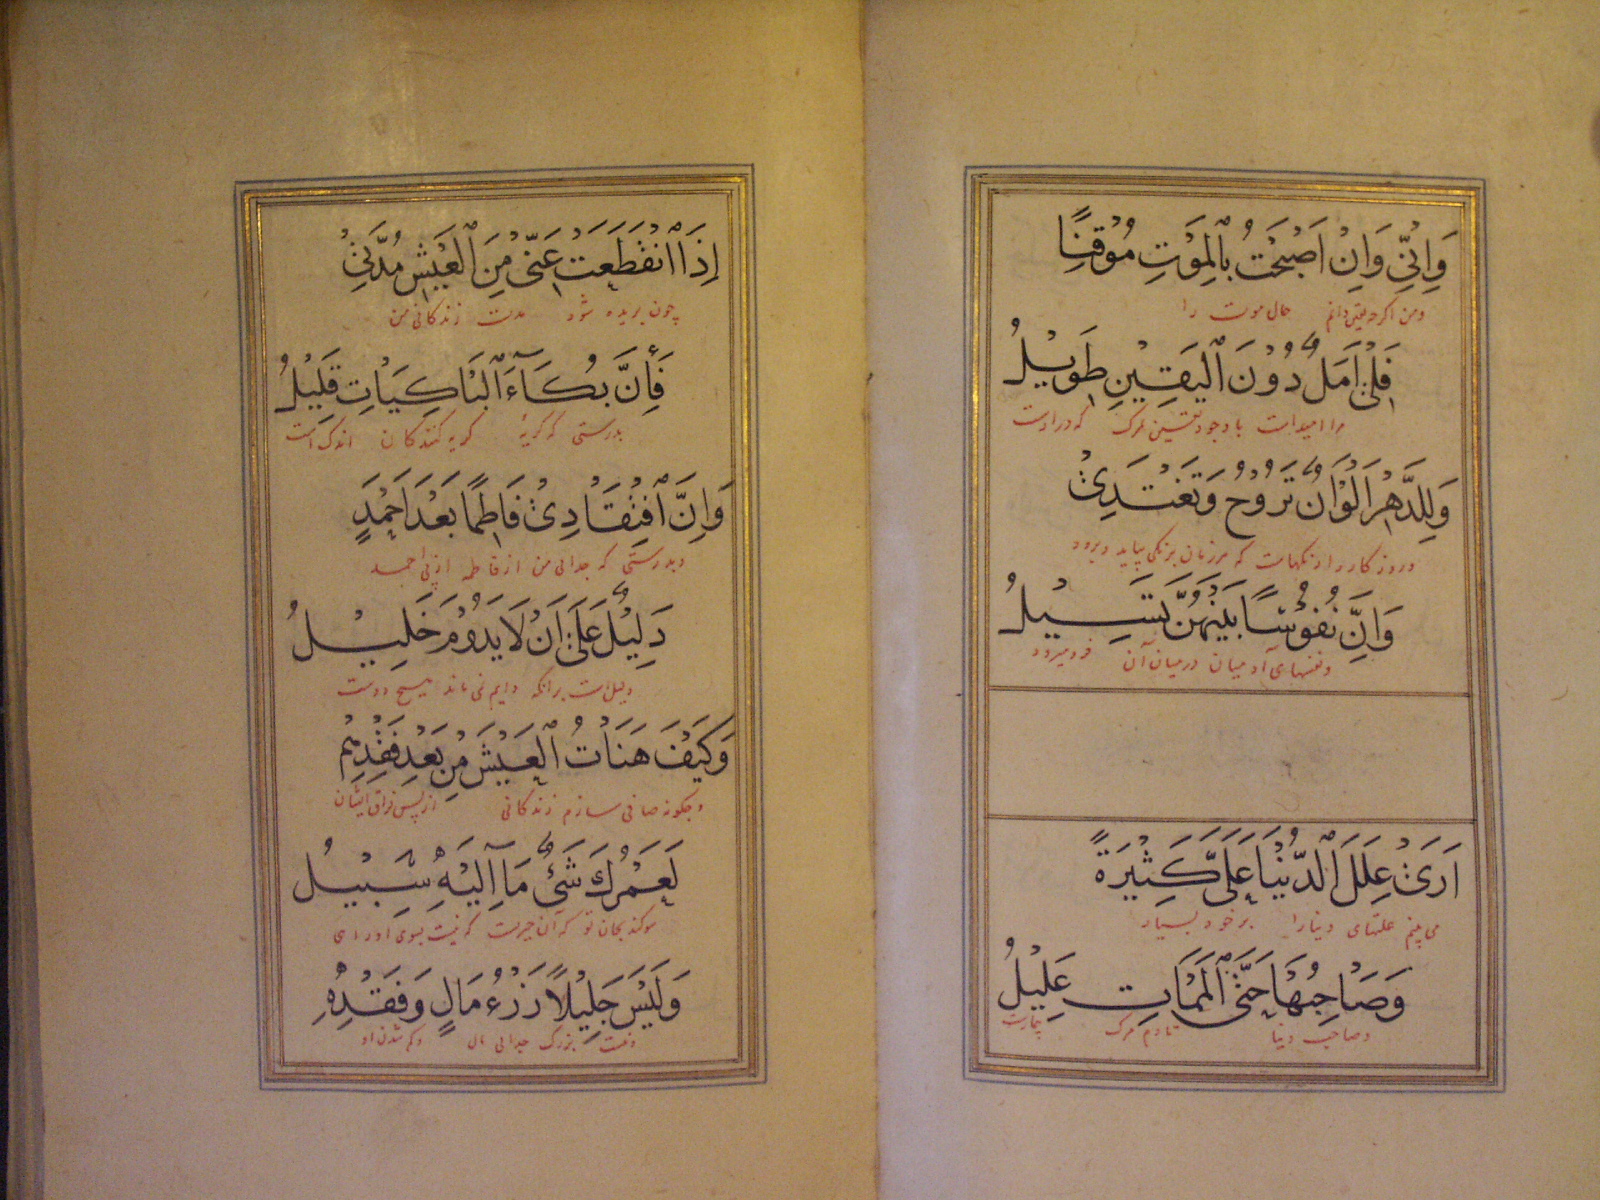 وَاِنِّي وَاِنْ اَصْبَحْتُ بِالْمَوْتِ مُوْقِنًا
ومن اکرچه یقین دانم حال موت را
فَلِيْ اَمَلٌ دُوْنَ الْيَقِيْنِ طَوِيْلُ
مرا امیداست باوجود یقین مرک که درازست
وَلِلدَّهْرِ اَلْوَانٌ تَرُوْحُ وَتَغْتَدِيْ
وروزکار را رنکهاست که هر زمان برنکی بیاید وبرود
وَاِنَّ نُفُوْسًا بَيْنَهُنَّ تَسِيْلُ
ونفسهای آدمیان درمیان آن فرو میرود
اَرَىْ عِلَلَ الدُّنْيَا عَلَيَّ كَثِيْرَةً
می بینم علتهای دنیارا برخود بسیار
وَصَاحِبُهَا حَتَّى الْمَمَاتِ عَلِيْلُ
وصاحب دنیا تادم مرک بیمارست
اِذَا انْقَطَعَتْ عَنِّيْ مِنَ الْعَيْشِ مُدَّتِيْ
چون بریده شود مدت زندکانی من
فَاِنَّ بُكَآءَ الْبَاكِيَاتِ قَلِيْلُ
بدرستی که کریهٔ کریه کنندکان اندک است
وَاِنَّ افْتِقَادِيْ فَاطِمًا بَعْدَ اَحْمَدٍ
وبدرستی که جدائی من از فاطمه ازپی احمد
دَلِيْلٌ عَلَىٰ اَنْ لَا يَدُوْمَ خَلِيْلُ
دلیل است برانکه دایم نمی ماند هیچ دوست
وَكَيْفَ هَنَاتُ الْعَيْشَ مِنْ بَعْدِ فَقْدِهِمْ
وچکونه صافی سازم زندکانی ازپس فراق ایشان
لَعَمْرُكَ شَيْءٌ مَا اِلَيْهِ سَبِيْلُ
سوکند بجان تو که آن چیزیست که نیست بسوی او راهی
وَلَيْسَ جَلِيْلًا رُزْءُ مَالٍ وَفَقْدُهُ
ونیست بزرک جدائی مال وکم شدن او